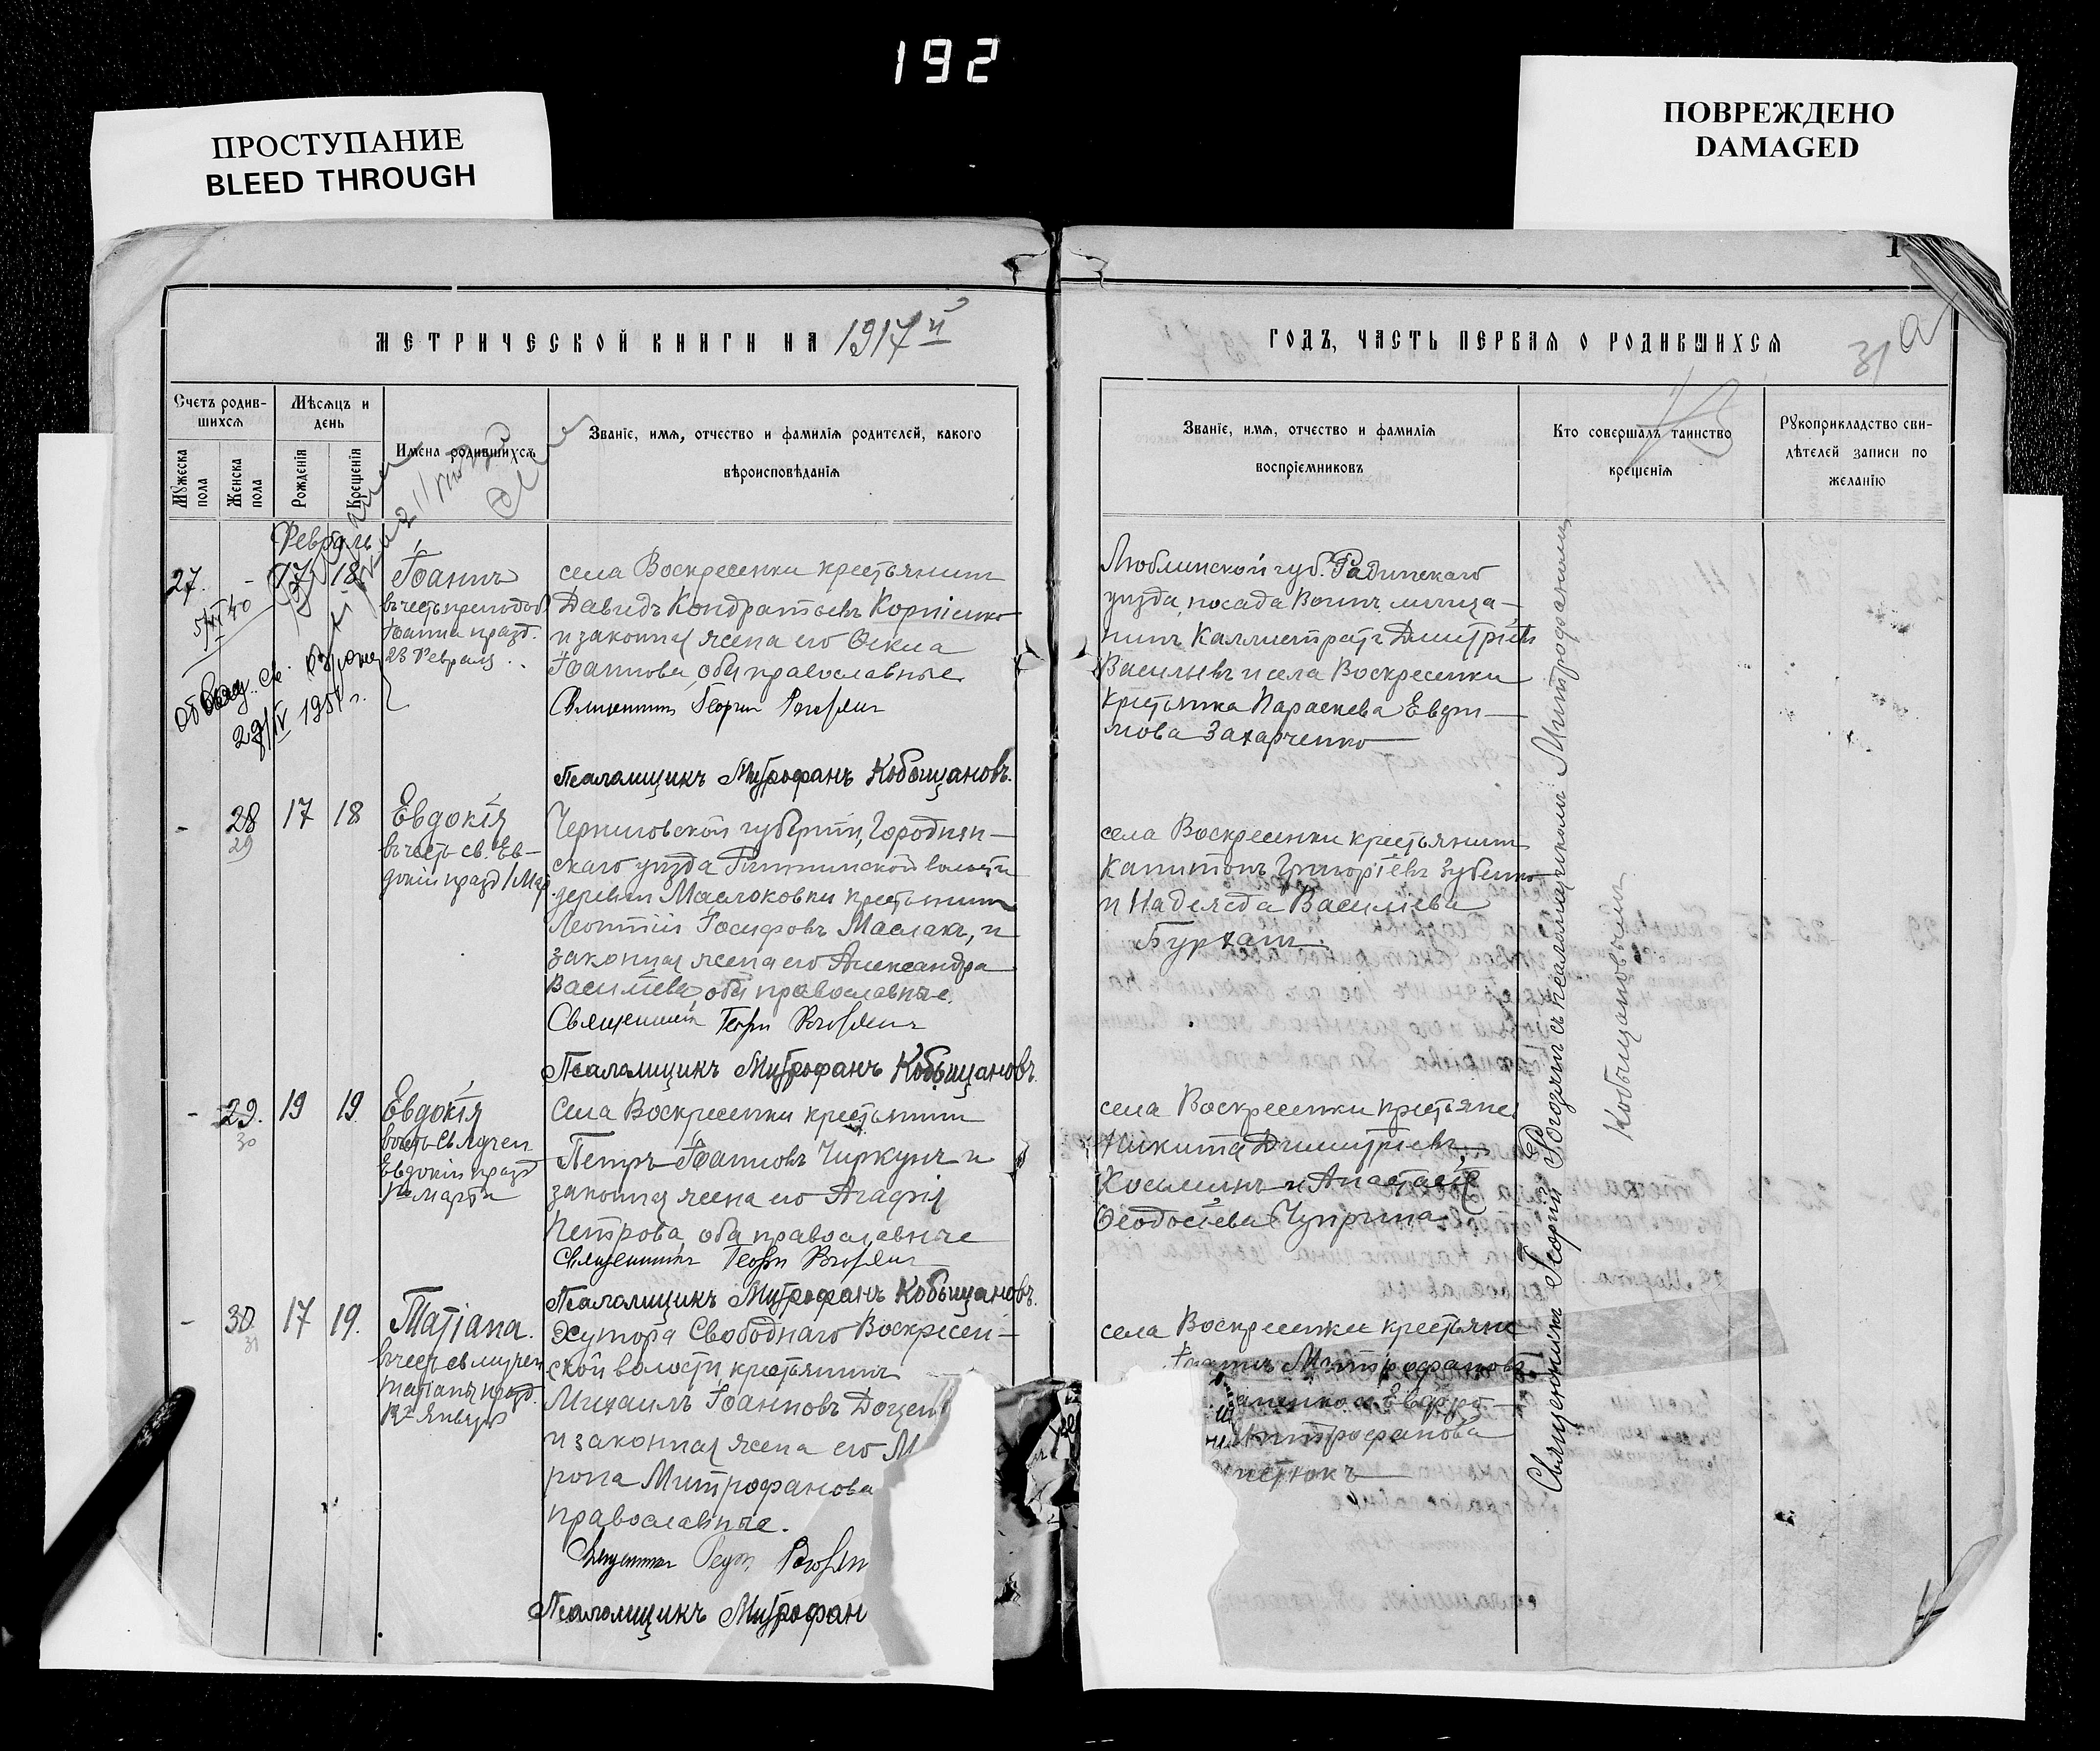 192
ПРОСТУПАНИЕ
BLEED THROUGH
ПОВРЕЖДЕНО
DAMAGED
МЕТРИЧЕСКОЙ КНИГИ НА 1917й
Счетъ родив-
шихся
Мѣсяцъ и
день
Мужеска
пола
Женска
пола
Рожденія
Крещенія
Имена родившихся
Званіе, имя, отчество и фамилія родителей, какого
вѣроисповѣданія
Февраль
27. - 17 18
Іоаннъ
въ честь преподоб.
Іоанна празд.
23 Февраля
5/VI 40
св.
29/IV 1951 г.
села Воскресенки крестьянинъ
Давидъ Кондратьевъ Корніенко
и законная жена его Ѳекла
Іоаннова, оба православные
Священникъ Георгій Рогозинъ
Псаломщикъ Митрофанъ Кобыщановъ.
- 28 17 18
29
Евдокія
въ честь св. Ев-
докіи празд. 1 Мар.
Черниговской губерніи, Городнян-
скаго уѣзда волости
деревни Маслоковки крестьянинъ
Леонтій Іосифовъ Маслакъ, и
законная жена его Александра
Васильева, оба православные.
Священникъ Георгій Рогозинъ
Псаломщикъ Митрофанъ Кобыщановъ.
- 29. 19 19
30
Евдокія
въ честь св. мучен.
Евдокіи празд.
1го марта
Села Воскресенки крестьянинъ
Петръ Іоанновъ Чиркунъ и
законная жена его Агафія
Петрова, оба православные
Священникъ Георгій Рогозинъ
Псаломщикъ Митрофанъ Кобыщановъ.
- 30. 17 19.
31
Татіана.
въ честь св. мучен.
Татіаны празд.
12го Января
Хутора Свободнаго Воскресен-
ской волости, крестьянинъ
Михаилъ Іоанновъ Доцен
и законная жена его М
рона Митрофанова
православные.
Священникъ Георгій Рогозин
Псаломщикъ Митрофан
1
ГОДЪ, ЧАСТЬ ПЕРВАЯ О РОДИВШИХСЯ
31 а
Званіе, имя, отчество и фамилія
воспріемниковъ
Кто совершалъ таинство
крещенія
Рукоприкладство сви-
дѣтелей записи по
желанію
Люблинской губ. Радинскаго
уѣзда, посада Воинъ, мѣща-
нинъ Каллистратъ Димитріевъ
Васильевъ и села Воскресенки
крестьянка Параскева Евѳи-
мова Захарченко
села Воскресенки крестьянинъ
Капитонъ Григоріевъ Зубенко
и Надежда Васильева
Бурханъ.
села Воскресенки крестьяне
Никита Димитріевъ
Косьминъ и Анастасія
Ѳеодосіева Чуприна.
села Воскресенки крестьяне
Митрофановъ
аненко и Евфро-
Митрофанова
Священникъ Георгій Рогозинъ съ псаломщикомъ Митрофаномъ
Кобыщановымъ